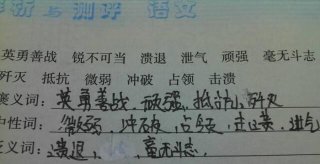 析与测评 语文
英勇善战 锐不可当 溃退 泄气 顽强 毫无斗志
歼灭 抵抗 微弱 冲破 占领 击溃
褒义词：英勇善战、顽强、抵抗、歼灭
中性词：微弱、冲破、占领、击溃、泄气
义词：溃退、毫无斗志.